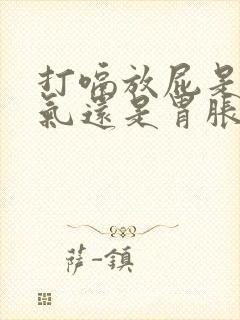 打嗝放屁是
氣還是胃脹
薩-鎮